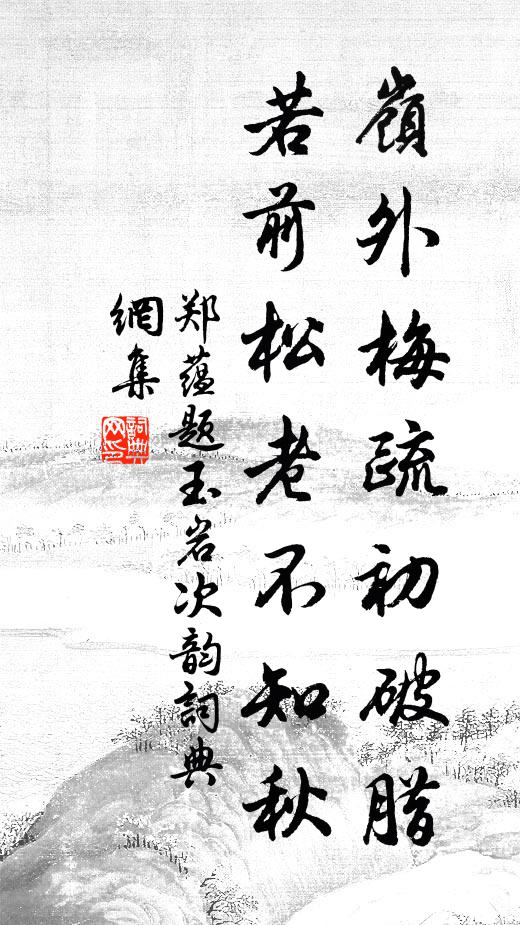 嶺外梅疏初破腊
若前松老不知秋
郑蕴题玉岩次韵詞典
網集
詞典网印